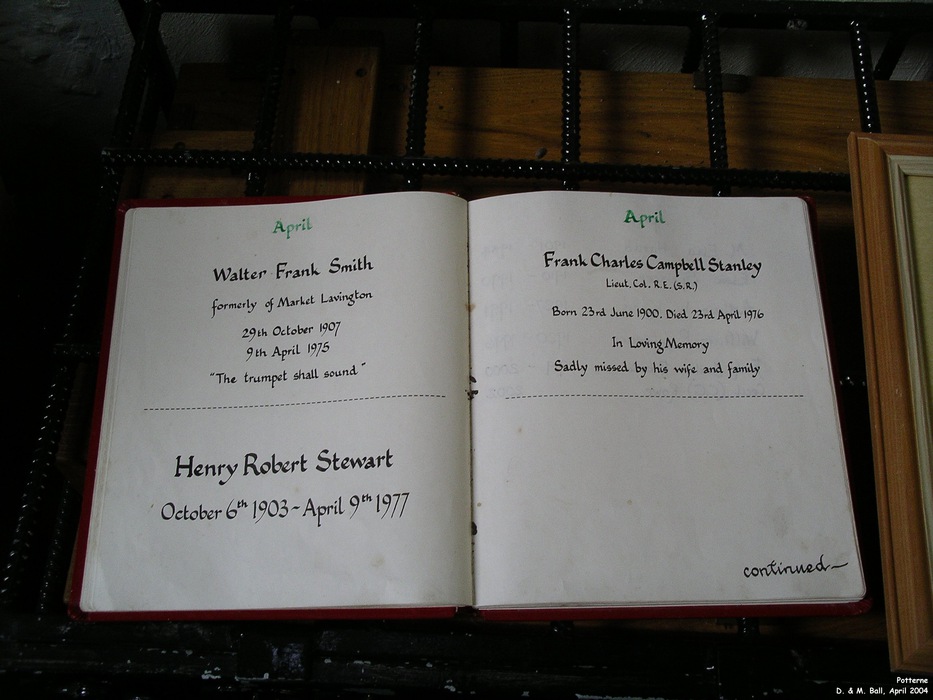 April
Walter Frank Smith
formerly of Market Lavington
29th October 1907
9th April 1975
"The trumpet shall sound"
Henry Robert Stewart
October 6th 1903 - April 9th 1977
April
Frank Charles Campbell Stanley
Lieut. Col. R.E. (S.R.)
Born 23rd June 1900. Died 23rd April 1976
In Loving Memory
Sadly missed by his wife and family
continued—
Potterne
D. & M. Ball, April 2004